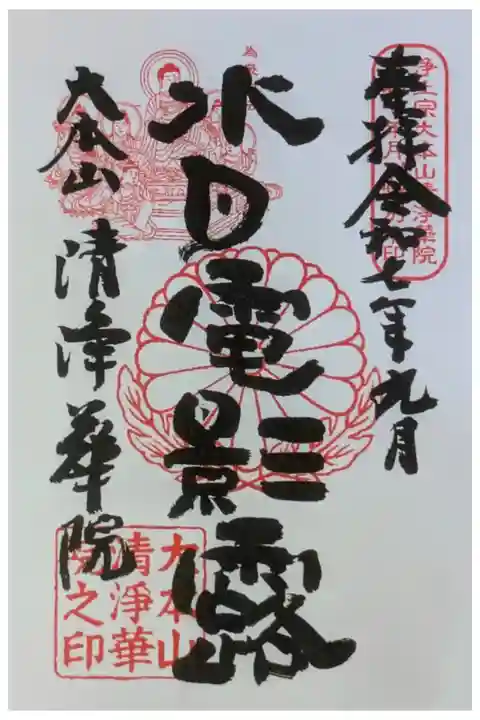 奉拝令和七年九月
水月電影露
大本山
清浄華院
浄土宗大本山清浄華院
大本山
清淨華
院之印